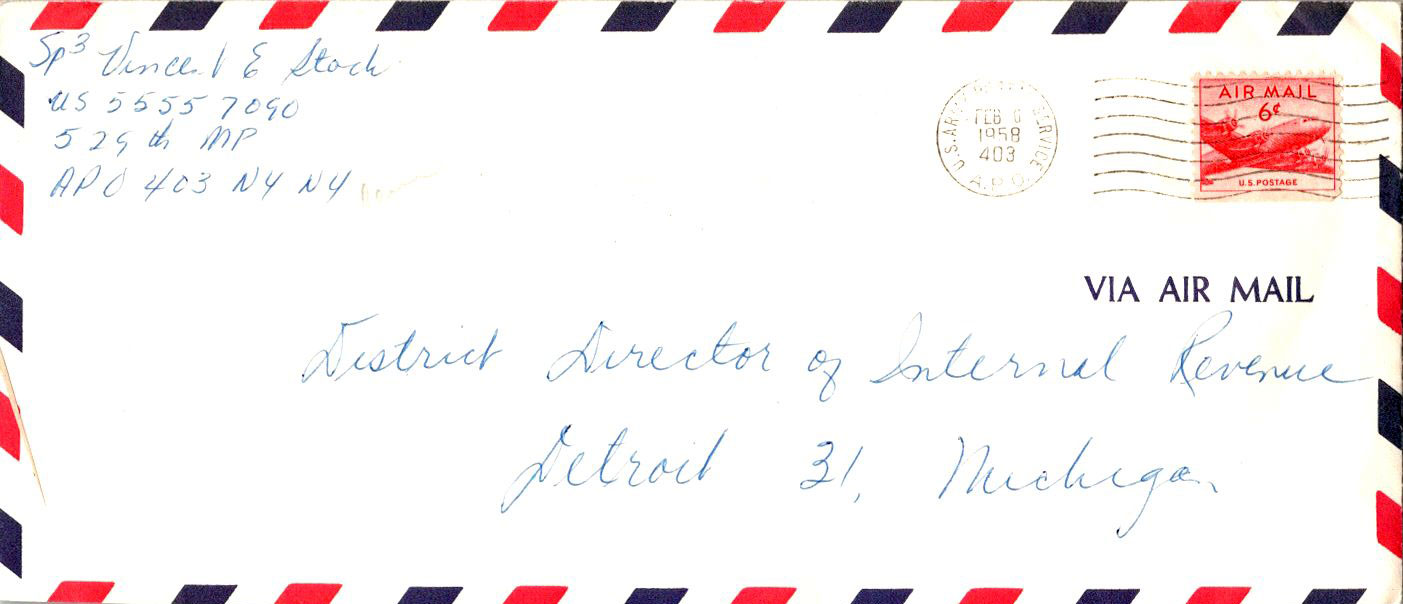 Sp3 Vincent E Stock
US 5555 7090
529th MP
APO 403 NY NY
U.S. ARMY SERVICE
FEB 6
1958
403
A.P.O.
AIR MAIL
6¢
U.S. POSTAGE
VIA AIR MAIL
District Director of Internal Revenue
Detroit 31, Michigan